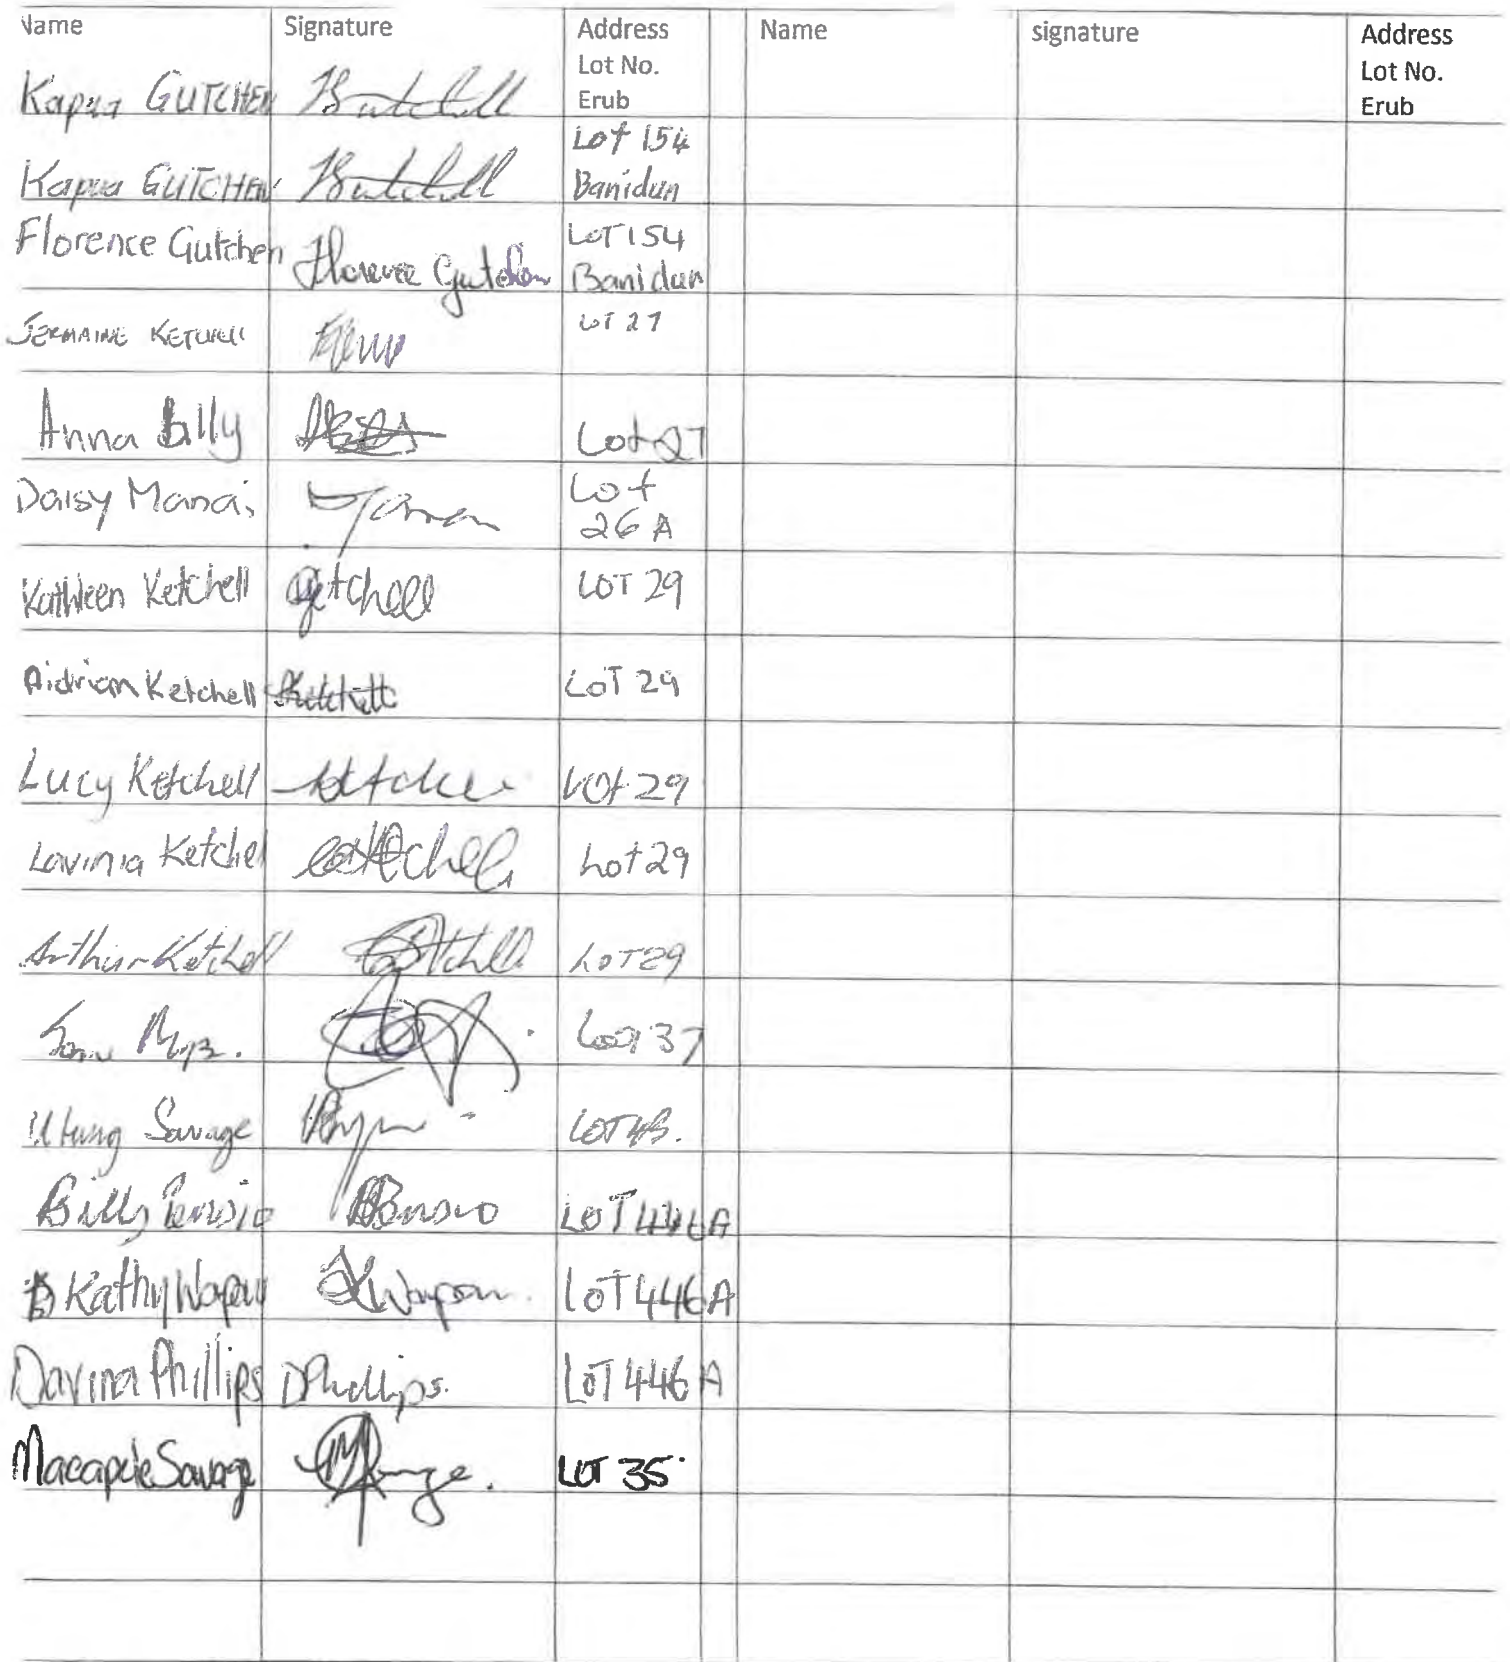 Name Signature Address Name signature Address
Lot No. Lot No.
Erub Erub
Kapua GUTCHEN
Lot 154
Kapua GUTCHEN Banidun
Florence Gutchen Florence Gutchen LOT 154
Banidun
JERMAINE KETCHELL LOT 27
Anna Billy Lot 27
Daisy Manai Lot
26 A
Kathleen Ketchell Ketchell LOT 29
Aidrian Ketchell Ketchell LOT 29
Lucy Ketchell Lot 29
Lavinia Ketchel Lot 29
Arthur Ketchell LOT 29
Lot 37
Savage
Billy Bensio LOT 446A
Kathy Wapau LOT 446 A
Davina Phillips DPhillips. LOT 446 A
Savage LOT 35